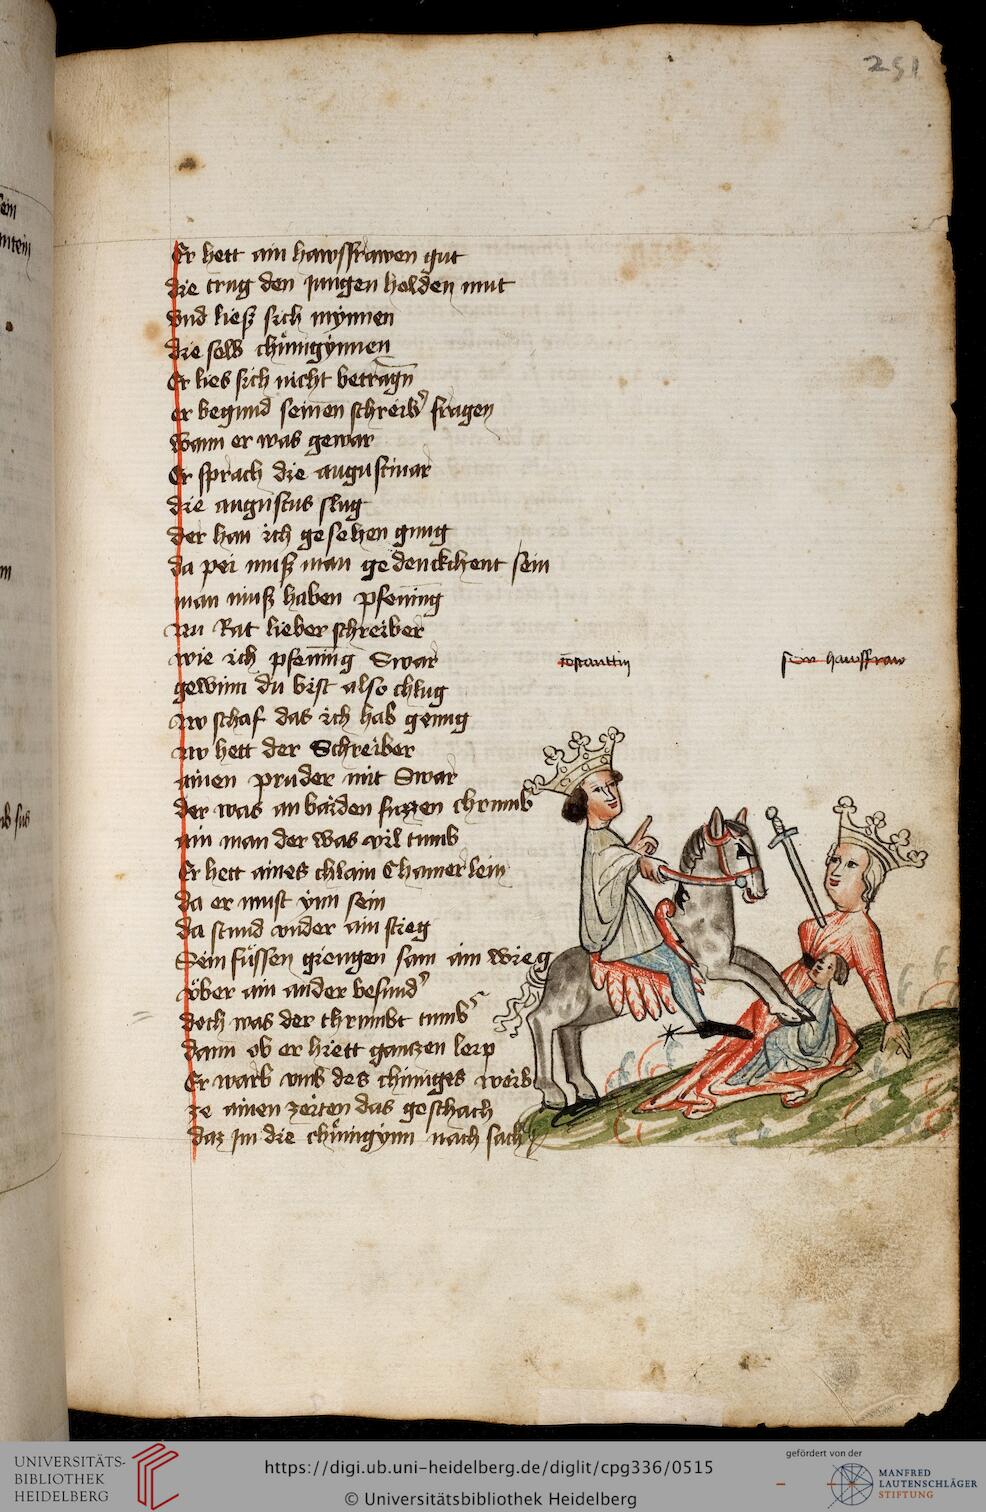 251
Er hett ain hawsfrawen gut
die trug den jungen holden mut
vnd ließ sich mynnen
die selb chünigynnen
Er lies sich nicht betragn
er begund seinen schreib' fragen
wann er was gewar
Er sprach die augustinar
die augustus slug
der han ich gesehen gnug
da pei muß man gedenckchent sein
man muß haben pfening
nu Rat lieber schreiber
wie ich pfening Swar
gewinn du bist also chlug
nw schaf das ich hab genug
nw hett der Schreiber
ainen pruder mit Swar
der was an baiden fuzzen chrumb
ain man der was vil tumb
Er hett aines chlain Chamerlein
da er must ynn sein
da stund vnder ain stieg
Sein füssen giengen sam ain wieg
vber ain ander besund'
doch was der chrumbt tumb'
dann ob er hiett gantzen leip
Er warb vmb des chuniges weib
ze ainen zeiten das geschach
daz jm die chünigynn nach sach
costanttin
sein hawsfraw
UNIVERSITÄTS-
BIBLIOTHEK
HEIDELBERG
https://digi.ub.uni-heidelberg.de/diglit/cpg336/0515
© Universitätsbibliothek Heidelberg
gefördert von der
MANFRED
LAUTENSCHLÄGER
STIFTUNG